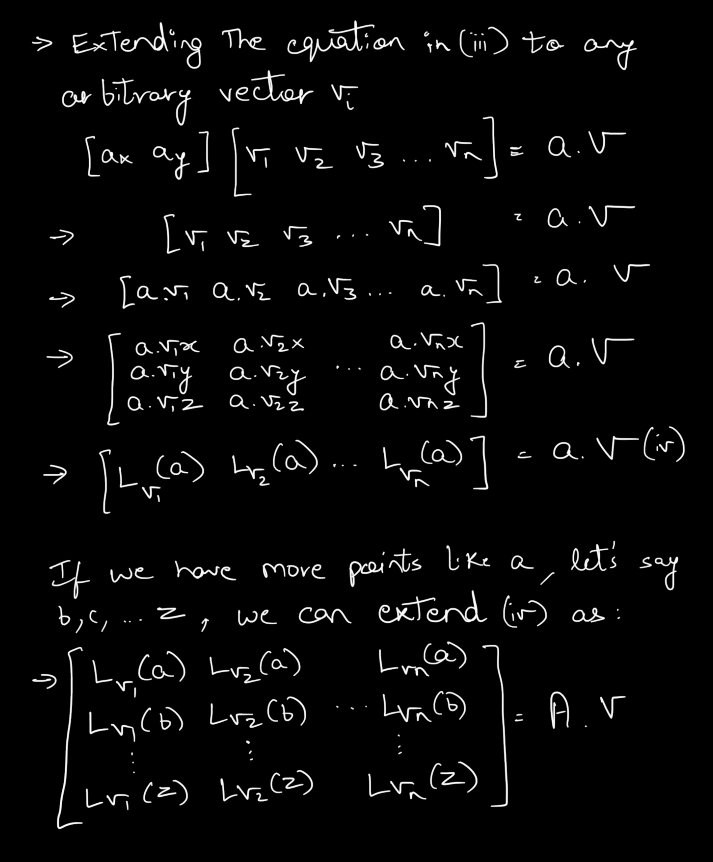 → Extending The equation in (iii) to any
arbitrary vector v_i
[ax ay] [v₁ v₂ v₃ ... vₙ] = a.V
→ [v₁ v₂ v₃ ... vₙ] = a.V
→ [a.v₁ a.v₂ a.v₃ ... a.vₙ] = a.V
→ [a.v₁x a.v₂x a.vₙx
a.v₁y a.v₂y ... a.vₙy
a.v₁z a.v₂z a.vₙz] = a.V
→ [L_v₁(a) L_v₂(a) ... L_vₙ(a)] = a.V (iv)
If we have more points like a, let's say
b, c, ... z, we can extend (iv) as:
→ [L_v₁(a) L_v₂(a) L_vₙ(a)
L_v₁(b) L_v₂(b) ... L_vₙ(b)
⋮ ⋮ ⋮
L_v₁(z) L_v₂(z) L_vₙ(z)] = A.V